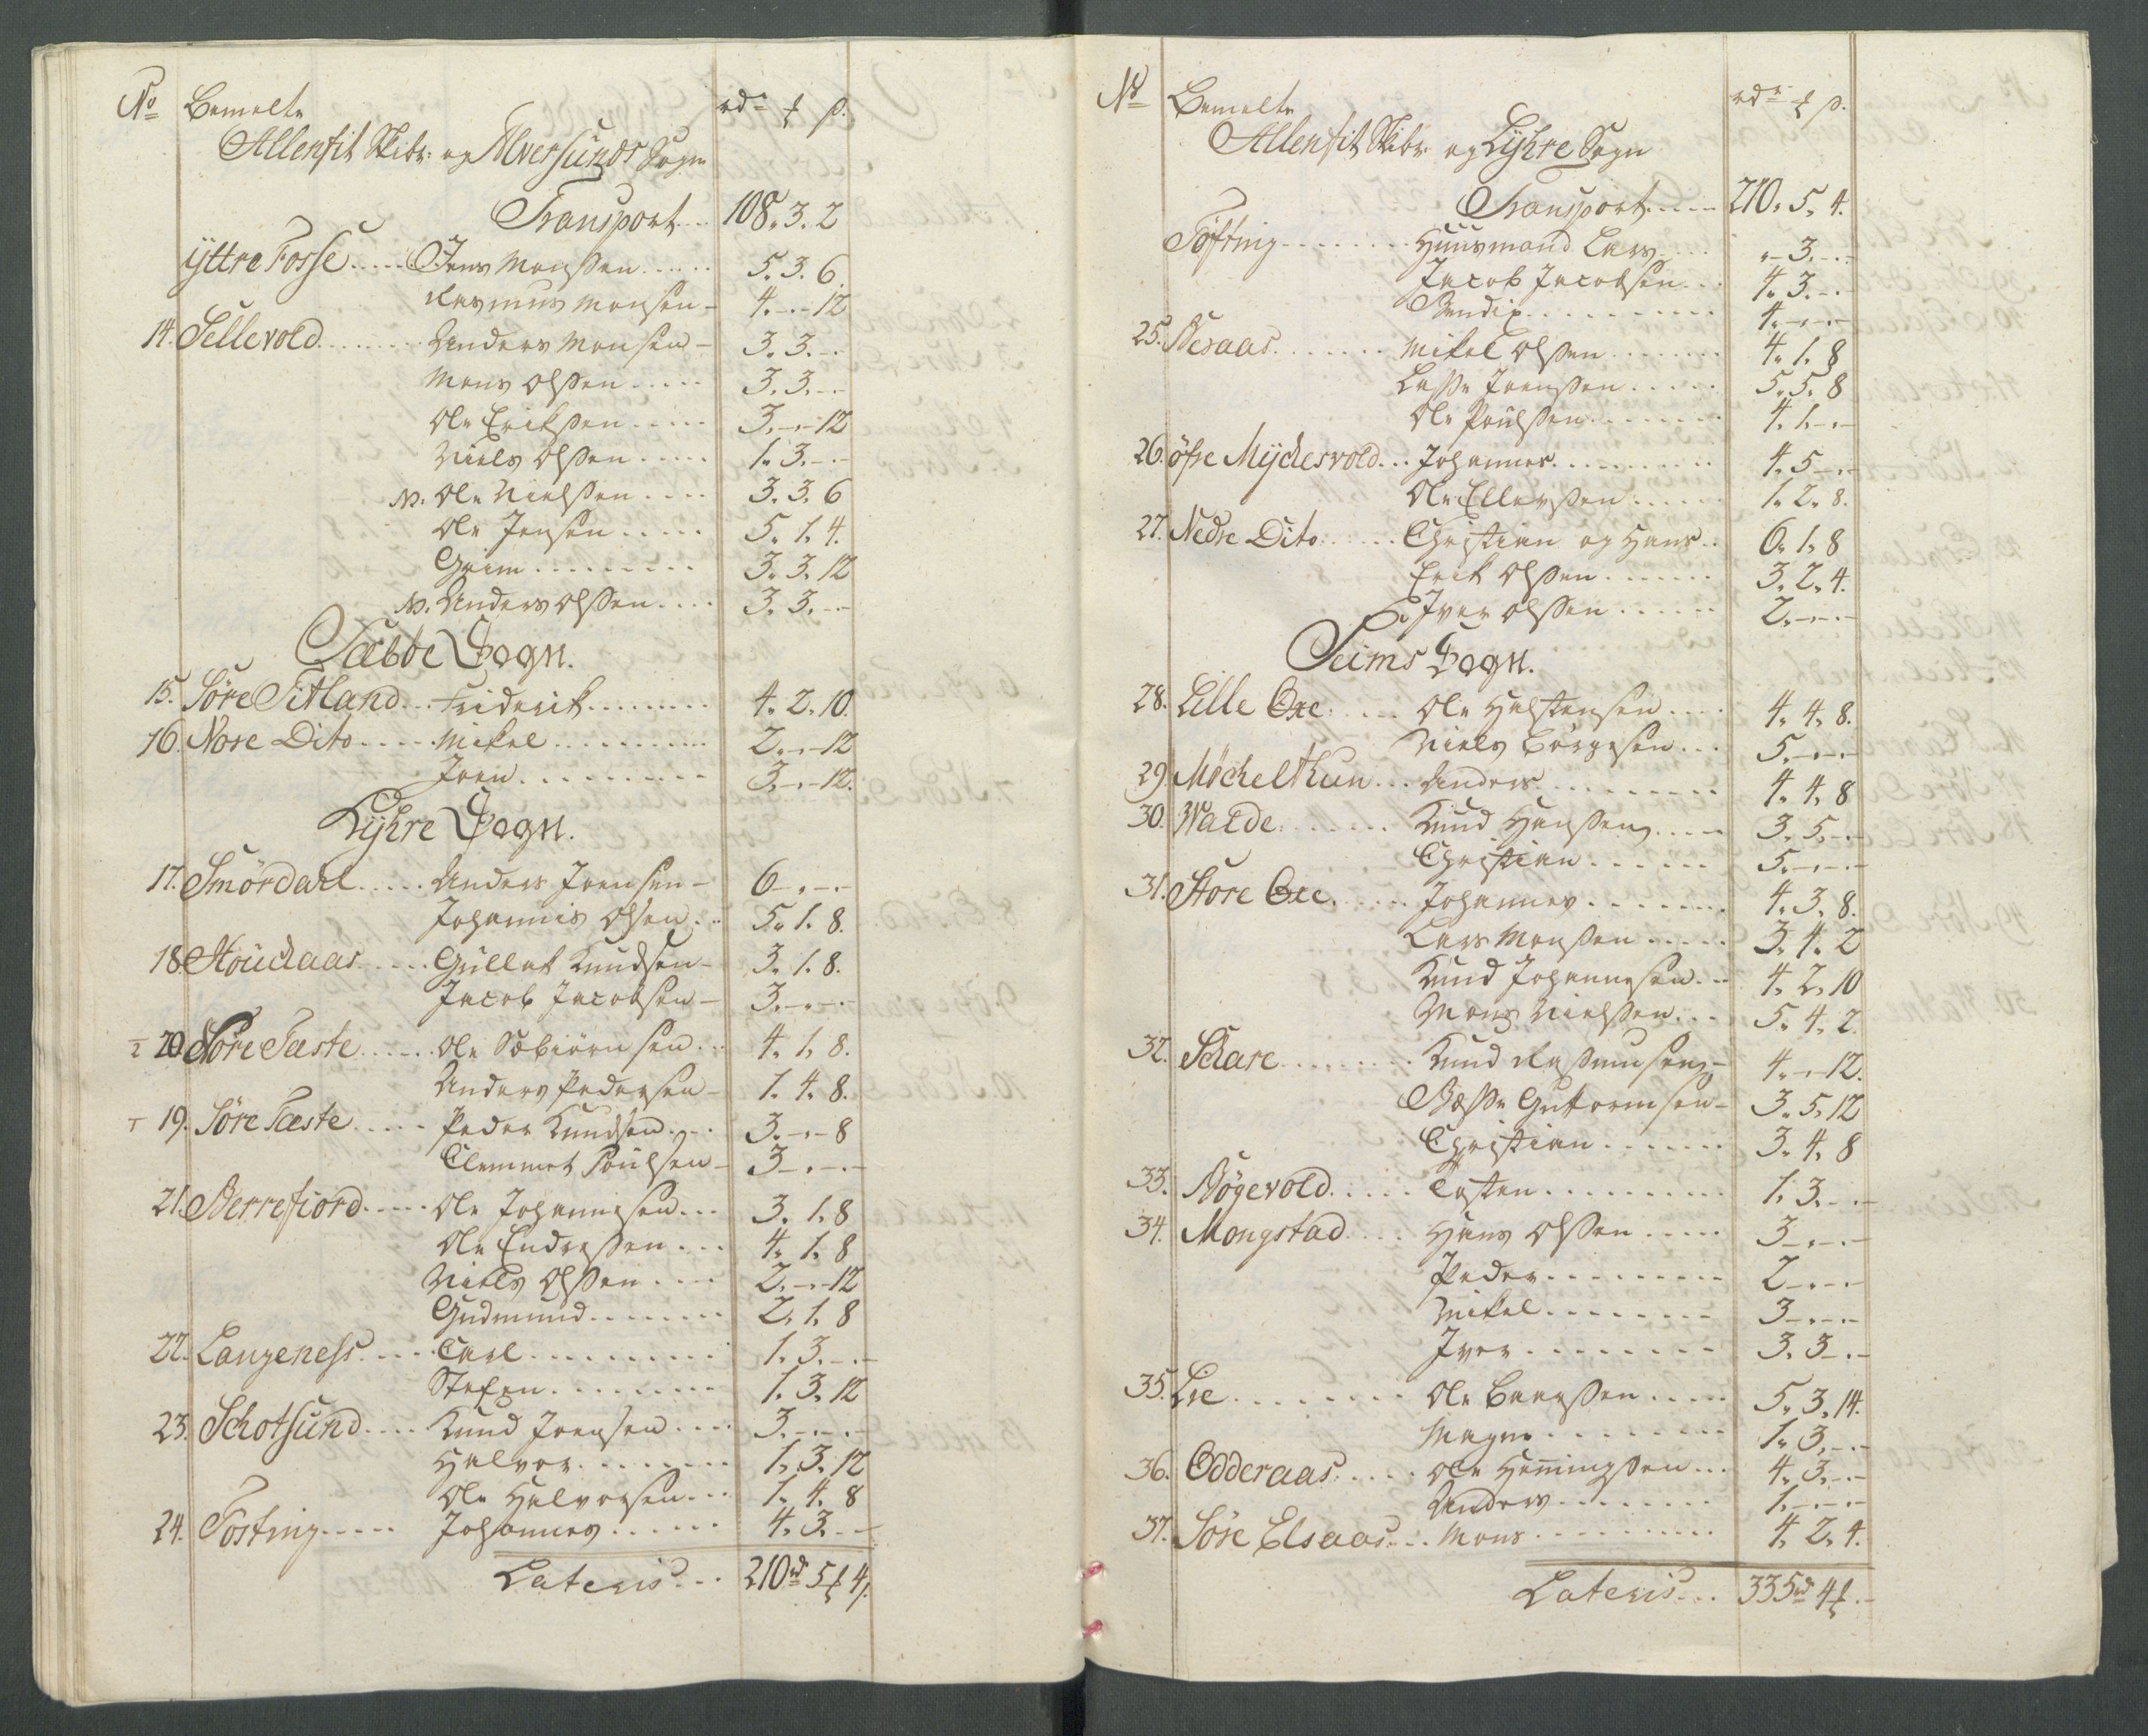 No Bemelte rdr ₰ ß.
Allenfit Skibr: og Alversunds Sogn
Transport... 108. 3. 2
ÿttre Fosse..... Jens Monssen...... 5. 3. 6
Rasmus Monsen - 4. -. - 12
14. Sellevold....... Anders Monsen - 3. 3. -.
Mons Olssen..... 3. 3. -.
Ole Erikssen..... 3. -. - 12
Niels Olssen..... 1. 3. -. -
N. Ole Nielssen.... 3. 3. 6
Ole Jensen..... 5. 1. 4.
Grim......... 3. 3. 12
N. Anders Olssen.... 3. 3. -. -
Sæbde Sogn.
15. Söre Titland... Friderik........ 4. 2. 10.
16. Nore Dito..... Mikel.......... 2. -. - 12
Joen.......... 3. -. - 12.
Lÿhre Sogn.
17. Smördahl..... Anders Joensen - 6 -. -. -
Johannis Olsen... 5. 1. 8.
18. Houdaas..... Gullak Knudsen - 3. 1. 8.
Jacob Jacobsen - 3. -. -. -
2 20. Nore Tæste...... Ole Sæbiörnsen... 4. 1. 8.
Anders Pedersen - 1. 4. 8.
T 19. Söre Tæste..... Peder Knudsen.... 3. -. - 8
Clemmet Poulsen - 3 -. -. -
21. Berrefiord..... Ole Johannesen... 3. 1. 8
Ole Endressen.... 4. 1. 8
Niels Olssen.... 2. -. - 12
Gudmund....... 2. 1. 8
22. Langeness..... Carl.......... 1. 3. -. -
Stefen........ 1. 3. 12
23. Schotsund.... Knud Joensen.... 3. -. -. -
Halvor........ 1. 3. 12
Ole Halvorsen... 1. 4. 8
24. Tosting..... Johannes...... 4. 3. - -
Lateris... 210 rd 5 ₰ 4 ß.
No Bemelte rdr ₰ ß.
Allenfit Skibr: og Lÿhre Sogn
Transport..... 210. 5. 4.
Töfting........ Huusmand Lars.... . - 3. -. -
Jacob Jacobsen... 4. 3. -.
Bendix.......... 4. -. -. -
25. Nesaas....... Mikel Olssen....... 4. 1. 8
Lasse Joenssen..... 5. 5. 8
Ole Poulssen....... 4. 1. -. -
26. öfre Mÿchesvold... Johannes.......... 4. 5 -. -
Ole Ellevssen..... 1. 2. 8.
27. Nedre Dito...... Christian og Hans.. 6. 1. 8
Erik Olssen....... 3. 2. 4.
Iver Olssen...... 2. -. -. -
Seims Sogn.
28. Lille Oxe..... Ole Halstensen.... 4. 4. 8.
Niels Börgesen... 5. -. -. -
29. Möchelthun... Anders......... 4. 4. 8
30. Walde....... Knud Hanssen..... 3. 5. -. -
Christian...... 5. -. -. -
31. Store Oxe...... Johannes........ 4. 3. 8.
Lars Monssen..... 3. 4. 2
Knud Johannesen... 4. 2. 10
Mons Nielssen... 5. 4. 2.
32. Schare........ Knud Rasmussen - 4. -. - 12.
Basse Guttormsen - 3. 5. 12
Christian....... 3. 4. 8
33. Bögevold..... Tosten.......... 1. 3. -. -
34. Mongstad.... Hans Olssen..... 3 -. -. -
Peder......... 2 -. -. -
Mikel........ 3 -. -. -
Iver......... 3. 3 -. -
35. Lie........ Ole Baarssen..... 5. 3. 14.
Magne......... 1. 3. -. -
36. Odderaas..... Ole Hemingssen... 4. 3. -. -
Anders........ 1. -. -. -
37. Söre Elsaas... Mons.......... 4. 2. 4.
Lateris... 335 rd 4 ₰ . -